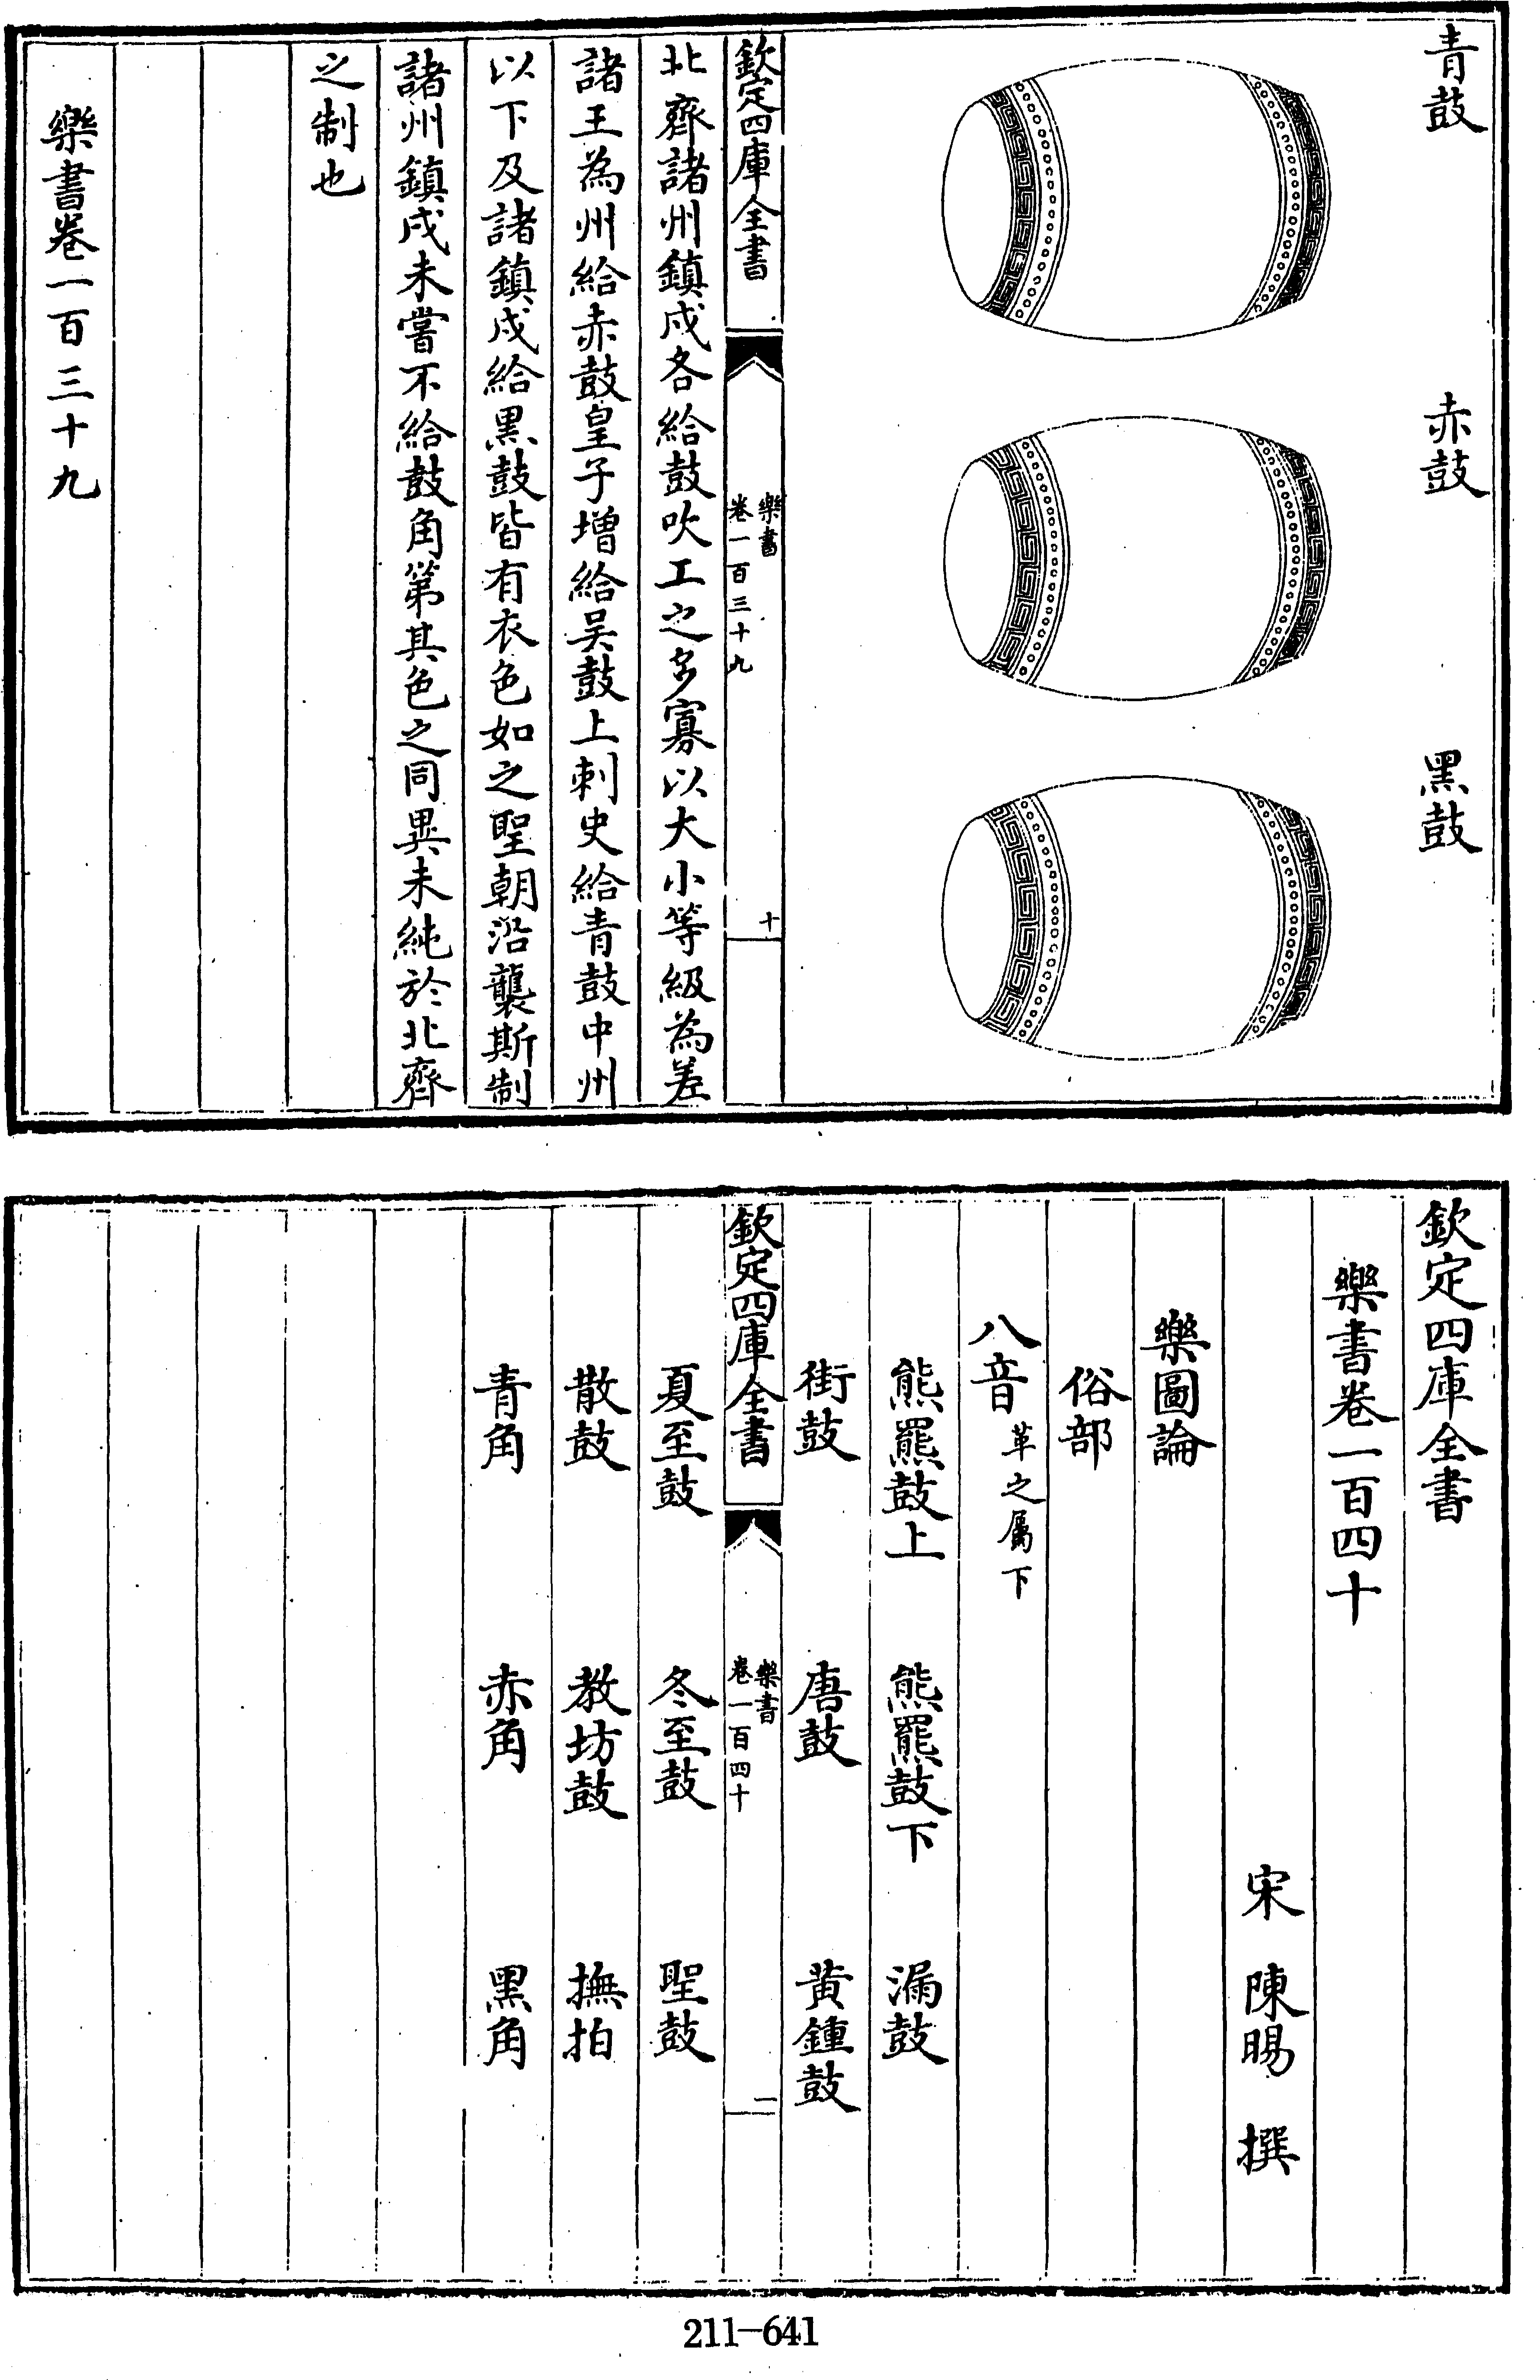 青鼓　赤鼓　黑鼓
欽定四庫全書
樂書
卷一百三十九
十
北齊諸州鎮戍各給鼓吹工之多寡以大小等級為差
諸王為州給赤鼓皇子增給吴鼓上刺史給青鼓中州
以下及諸鎮戍給黑鼓皆有衣色如之聖朝沿襲斯制
諸州鎮戍未嘗不給鼓角第其色之同異未純於北齊
之制也
樂書卷一百三十九
欽定四庫全書
樂書卷一百四十
宋　陳暘　撰
樂圖論
俗部
八音革之屬下
熊羆鼓上　熊羆鼓下　漏鼓
街鼓　唐鼓　黃鍾鼓
欽定四庫全書
樂書
卷一百四十
一
夏至鼓　冬至鼓　聖鼓
散鼓　教坊鼓　撫拍
青角　赤角　黑角
211-641